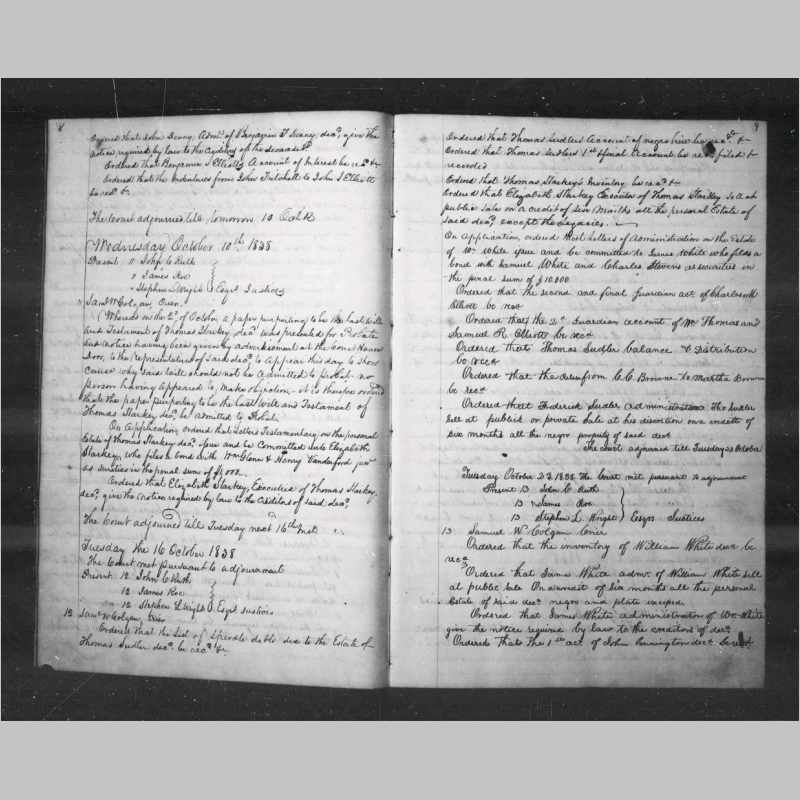 8
Ordered that John Denny, Adm. of Benjamin F Denny, dec^d, give the
notice required by law to the Creditors of the deceased
Ordered that Benjamin Elliotts Account of Interest be rec^d &
Ordered that the Indentures from John Tutchett to John S Elliott
be rec^d &
The Court adjourned till tomorrow 10 oclk
Wednesday October 10th 1838
Present 11 John C Ruth
11 James Roe
" Stephen L Wright Esq^rs Justices
Sam^l W Colgan, Crier.
Whereas on the 2^d of October a paper purporting to be the last will
and Testament of Thomas Starkey dec^d was presented for Probate
and notice having been given by advertisement at the Court House
Door, to the representatives of said dec^d to appear this day to show
cause why said will should not be admitted to Probat no
person having appeared to make objection it is therefore ordered
that the paper purporting to be the last will and Testament of
Thomas Starkey dec^d be admitted to Probat.
On Application, ordered that Letters Testamentary on the personal
Estate of Thomas Starkey dec^d Issue and be Committed unto Elizabeth
Starkey, who files bond with W^m Glenn & Henry Vandeford jun^r
as sureties in the penal sum of $1,000.
Ordered that Elizabeth Starkey, Executrix of Thomas Starkey
dec^d give the notice required by law to the creditors of said dec^d
The Court adjourned till Tuesday next 16th Inst
Tuesday the 16 October 1838
The Court met pursuant to adjournment
Present 12 John C Ruth
12 James Roe
12 Stephen L Wright Esq^rs Justices
12 Sam^l W Colgan, Crier
Ordered that the List of Sperate debts due to the Estate of
Thomas Sudler dec^d be rec^d &
9
Ordered that Thomas Sudlers Account of negro hire be rec^d &
Ordered that Thomas Sudlers 1st & final Account be rec^d filed &
recorded
Ordered that Thomas Starkey's Inventory be rec^d &
Ordered that Elizabeth Starkey Executrix of Thomas Starkey sell at
public sale on a credit of six Months all the personal Estate of
said dec^d except the legacies.
On Application, ordered that Letters of Administration on the Estate
of W^m White issue and be committed to James White who files a
bond with Samuel White and Charles Stevens as securities in
the penal sum of $10.000
Ordered that the second and final Guardian act. of Charles M
Elliott be rec^d
Ordered that the 2^d Guardian account of W^m Thomas and
Samuel R. Elliott be rec^d
Ordered that Thomas Sudler balance & Distribution
be rec^d
Ordered that the deed from C. C. Browne to Martha Browne
be rec^d
Ordered that Frederick Sudler administrator Tho Sudler
sell at publick or private sale at his discretion on a credit of
six months all the negro property of said dec^d
The court adjourned till Tuesday 23 October
Tuesday October 23 1838 The Court met pursuant to adjournment
Present 13 John C Ruth
13 James Roe
13 Stephen L. Wright Esqrs Justices
13 Samuel W Colgan Crier
Ordered that the inventory of William White dec^d be
rec^d
Ordered that James White admr. of William White sell
at public sale on a credit of six months all the personal
Estate of said dec^d negros and plate excepted
Ordered that James White administrator of Wm White
give the notice required by law to the creditors of dec^d
Ordered that the 1st act. of John Pennington dec^d be rec^d